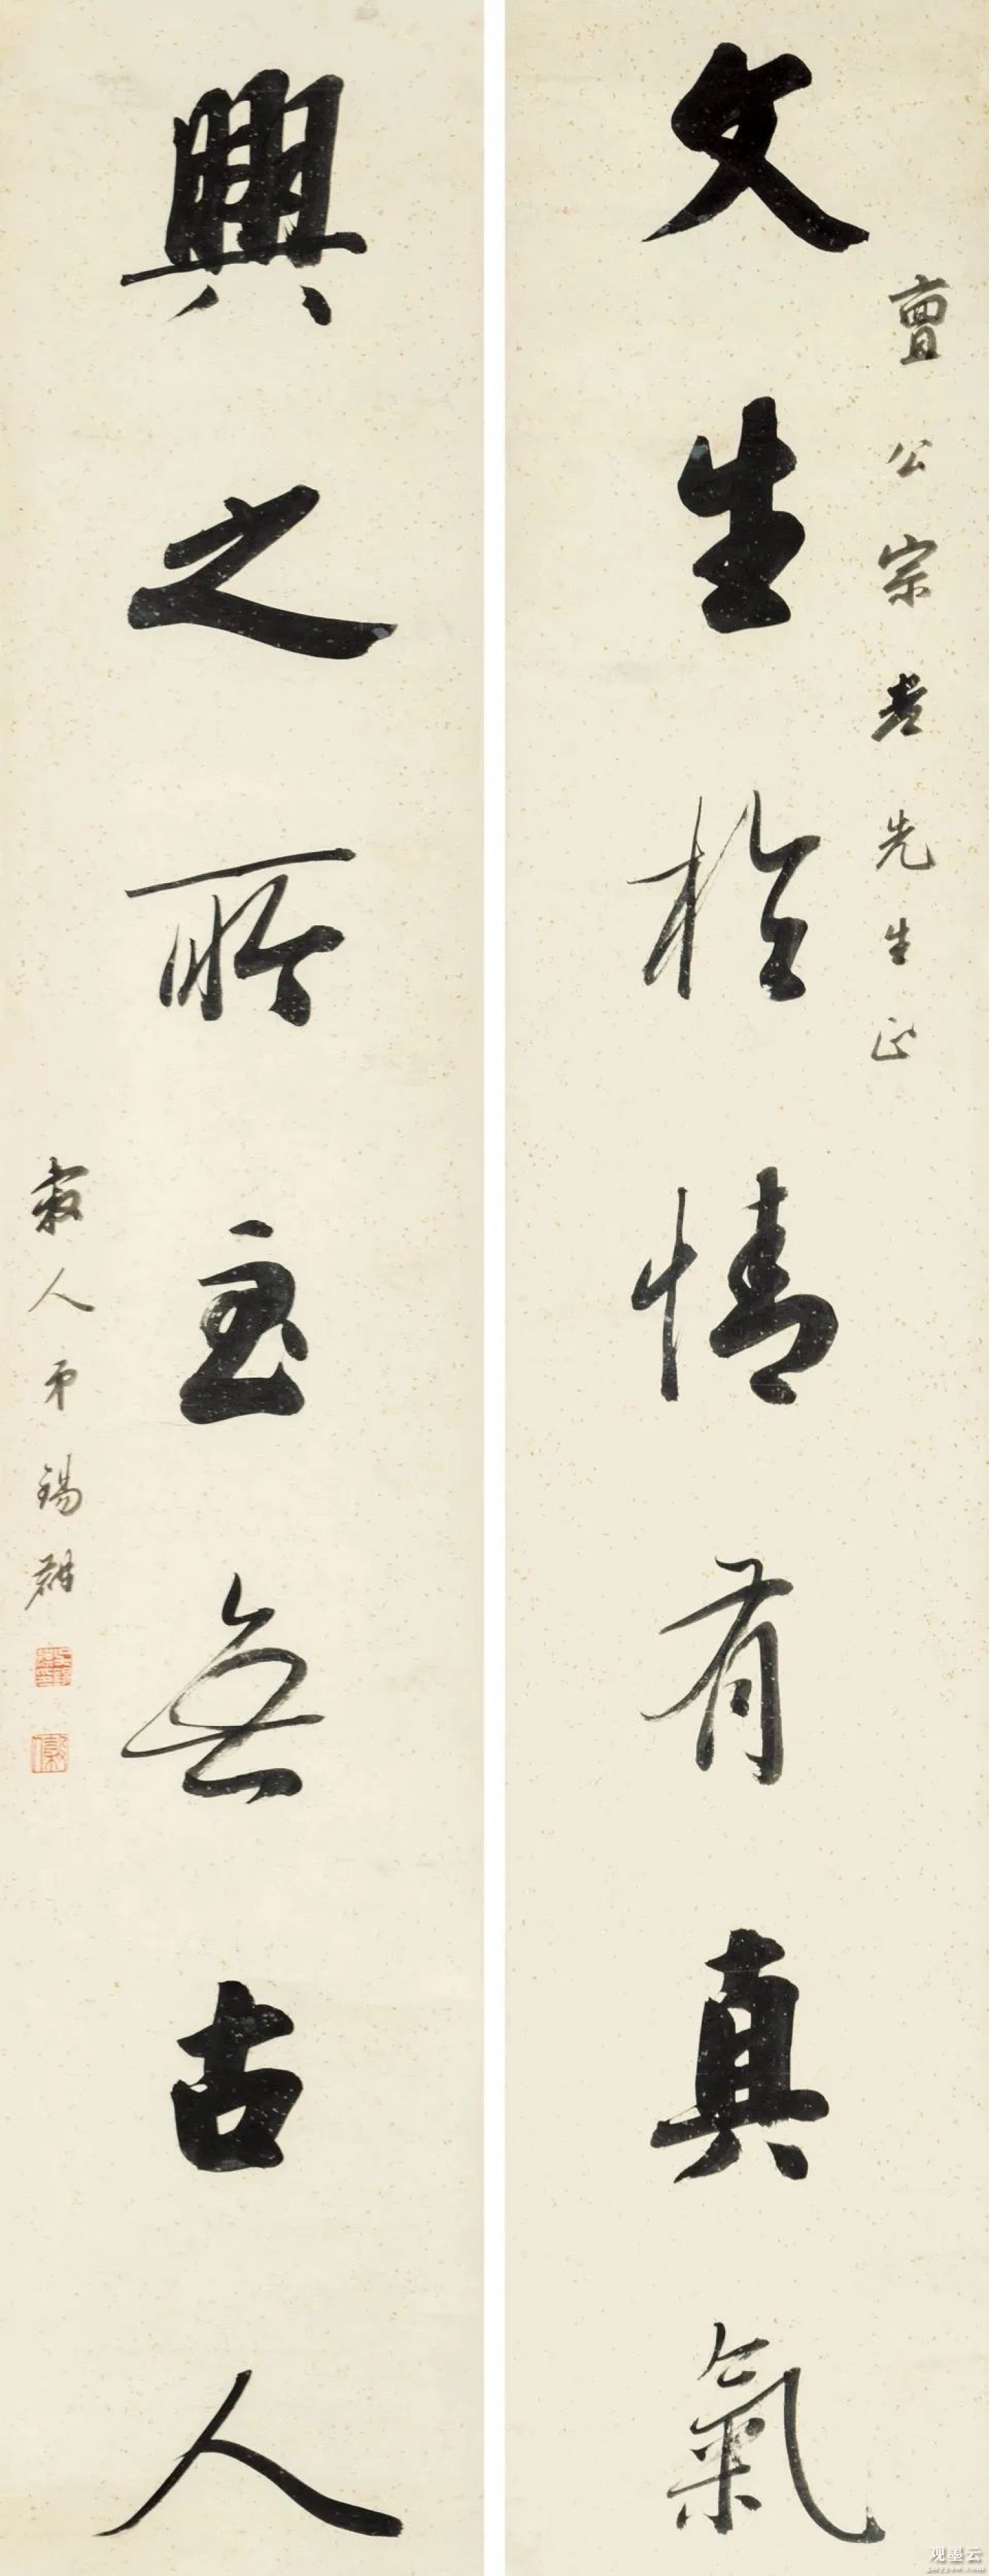 公宗老先生正
文生於情有真氣
興之所至無古人
穀人弟錫麒
观墨云